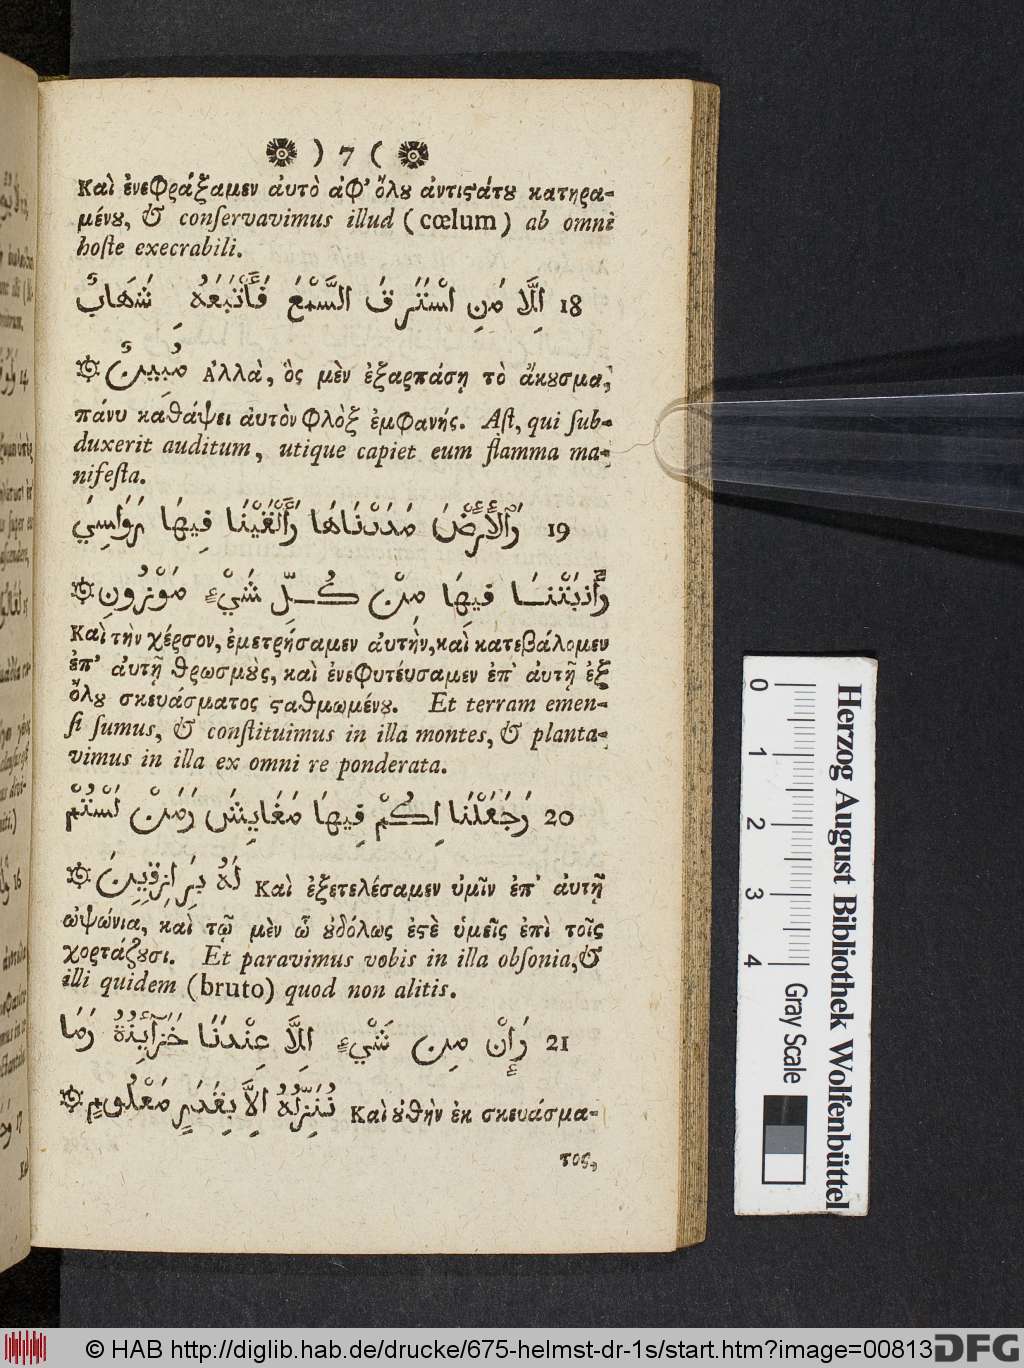 ) 7 (
Καὶ ἐνεφράξαμεν ἀυτὸ ἀφ' ὅλȣ ἀντιϛάτȣ κατηρα-
μένȣ, & conſervavimus illud (cœlum) ab omni
hoſte execrabili.
18 اِلَّا مَنِ اسْتَرَقَ السَّمْعَ فَأَتْبَعَهُ شَهَابٌ
مُبِينٌ Ἀλλὰ, ὃς μὲν ἐξαρπάσῃ τὸ ἄκȣσμα,
πάνυ καθάψει ἀυτὸν φλὸξ ἐμφανής. Aſt, qui ſub-
duxerit auditum, utique capiet eum flamma ma-
nifeſta.
19 وَٱلْأَرْضَ مَدَدْنَاهَا وَأَلْقَيْنَا فِيهَا رَوَاسِيَ
وَأَنبَتْنَا فِيهَا مِنْ كُلِّ شَيْءٍ مَوْزُونٍ
Καὶ τὴν χέρσον, ἐμετρήσαμεν ἀυτὴν, καὶ κατεβάλομεν
ἐπ' ἀυτῇ θρωσμὺς, καὶ ἐνεφυτέυσαμεν ἐπ' ἀυτῇ ἐξ
ὅλȣ σκευάσματος ϛαθμωμένȣ. Et terram emen-
ſi ſumus, & conſtituimus in illa montes, & planta-
vimus in illa ex omni re ponderata.
20 وَجَعَلْنَا لِكُمْ فِيهَا مَعَايِشَ وَمَنْ لَسْتُمْ
لَهُ بِرَازِقِينَ Καὶ ἐξετελέσαμεν ὑμῖν ἐπ' ἀυτῇ
ὠψώνια, καὶ τῷ μὲν ᾧ ȣδόλως ἐϛὲ ὑμεῖς ἐπὶ τοῖς
χορτάζȣσι. Et paravimus vobis in illa obſonia, &
illi quidem (bruto) quod non alitis.
21 وَإِنْ مِن شَيْءٍ اِلَّا عِنْدَنَا خَزَآئِنُهُ وَمَا
نُنَزِّلُهُ اِلَّا بِقَدَرٍ مَعْلُومٍ Καὶ ȣθὴν ἐκ σκευάσμα-
τος,
0 1 2 3 4
Herzog August Bibliothek Wolfenbüttel
Gray Scale
© HAB http://diglib.hab.de/drucke/675-helmst-dr-1s/start.htm?image=00813
DFG